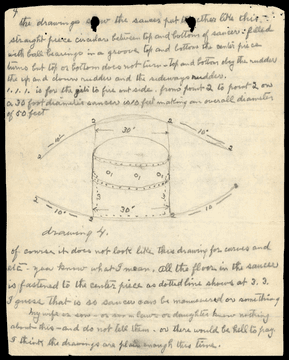 4
the drawings show the saucer put together like this -
straight piece circulars between top and bottom of saucers: filled
with ball bearings in a groove top and bottom the center piece
turns but top or bottom does not turn - top and bottom the rudders
the up and down rudders and the sideways rudders.
1.1.1.1. is for the jets to fire out side. from point 2 to point 2 on
a 30 foot diameter saucer is 10 feet making an overall diameter
of 50 feet
2
2
30'
10'
10"
2
2
10
10
10
3
3
2
2
30'
10"
10
2
2
drawing 4.
of course it does not look like this drawing for curves and
etc - you know what I mean. all the floor in the saucer
is fastened to the center piece as dotted line shows at 3.3.
I guess that is so saucer can be maneuvered or something
my wife or son - or son in law or daughter know nothing
about this - and do not tell them - or there would be hell to pay.
I think the drawings are plain enough this time.